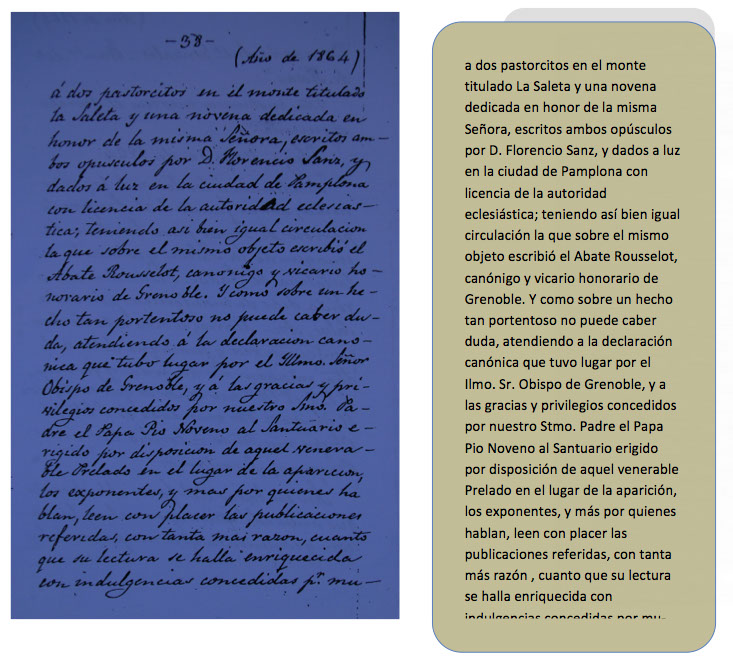 -38-
(Año de 1864)
á dos pastorcitos en el monte titulado
la Saleta y una novena dedicada en
honor de la misma Señora, escritos am-
bos opusculos por D. Florencio Sanz, y
dados á luz en la ciudad de Pamplona
con licencia de la autoridad eclesias-
tica; teniendo asi bien igual circulacion
la que sobre el mismo objeto escribió el
Abate Rousselot, canonigo y vicario ho-
norario de Grenoble. Y como sobre un he-
cho tan portentoso no puede caber du-
da, atendiendo á la declaracion cano-
nica que tubo lugar por el Illmo. Señor
Obispo de Grenoble, y á las gracias y pri-
vilegios concedidos por nuestro Smo. Pa-
dre el Papa Pio Noveno al Santuario e-
rigido por disposicion de aquel venera-
ble Prelado en el lugar de la aparicion,
los exponentes, y mas por quienes ha
blan, leen con placer las publicaciones
referidas, con tanta mas razon, cuanto
que su lectura se halla enriquecida
con indulgencias concedidas pr. mu-
a dos pastorcitos en el monte
titulado La Saleta y una novena
dedicada en honor de la misma
Señora, escritos ambos opúsculos
por D. Florencio Sanz, y dados a luz
en la ciudad de Pamplona con
licencia de la autoridad
eclesiástica; teniendo así bien igual
circulación la que sobre el mismo
objeto escribió el Abate Rousselot,
canónigo y vicario honorario de
Grenoble. Y como sobre un hecho
tan portentoso no puede caber
duda, atendiendo a la declaración
canónica que tuvo lugar por el
Ilmo. Sr. Obispo de Grenoble, y a
las gracias y privilegios concedidos
por nuestro Stmo. Padre el Papa
Pio Noveno al Santuario erigido
por disposición de aquel venerable
Prelado en el lugar de la aparición,
los exponentes, y más por quienes
hablan, leen con placer las
publicaciones referidas, con tanta
más razón , cuanto que su lectura
se halla enriquecida con
indulgencias concedidas por mu-